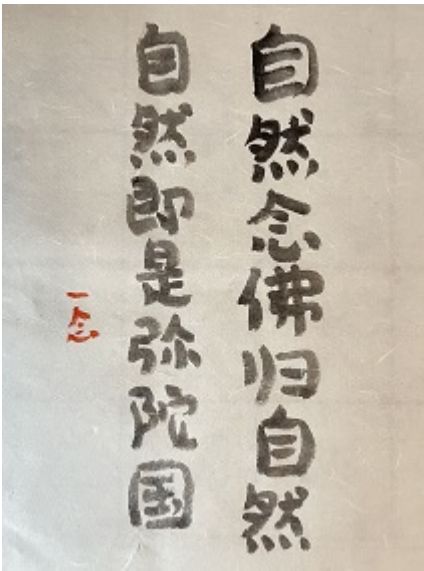 自然念佛归自然
自然即是弥陀国
一念